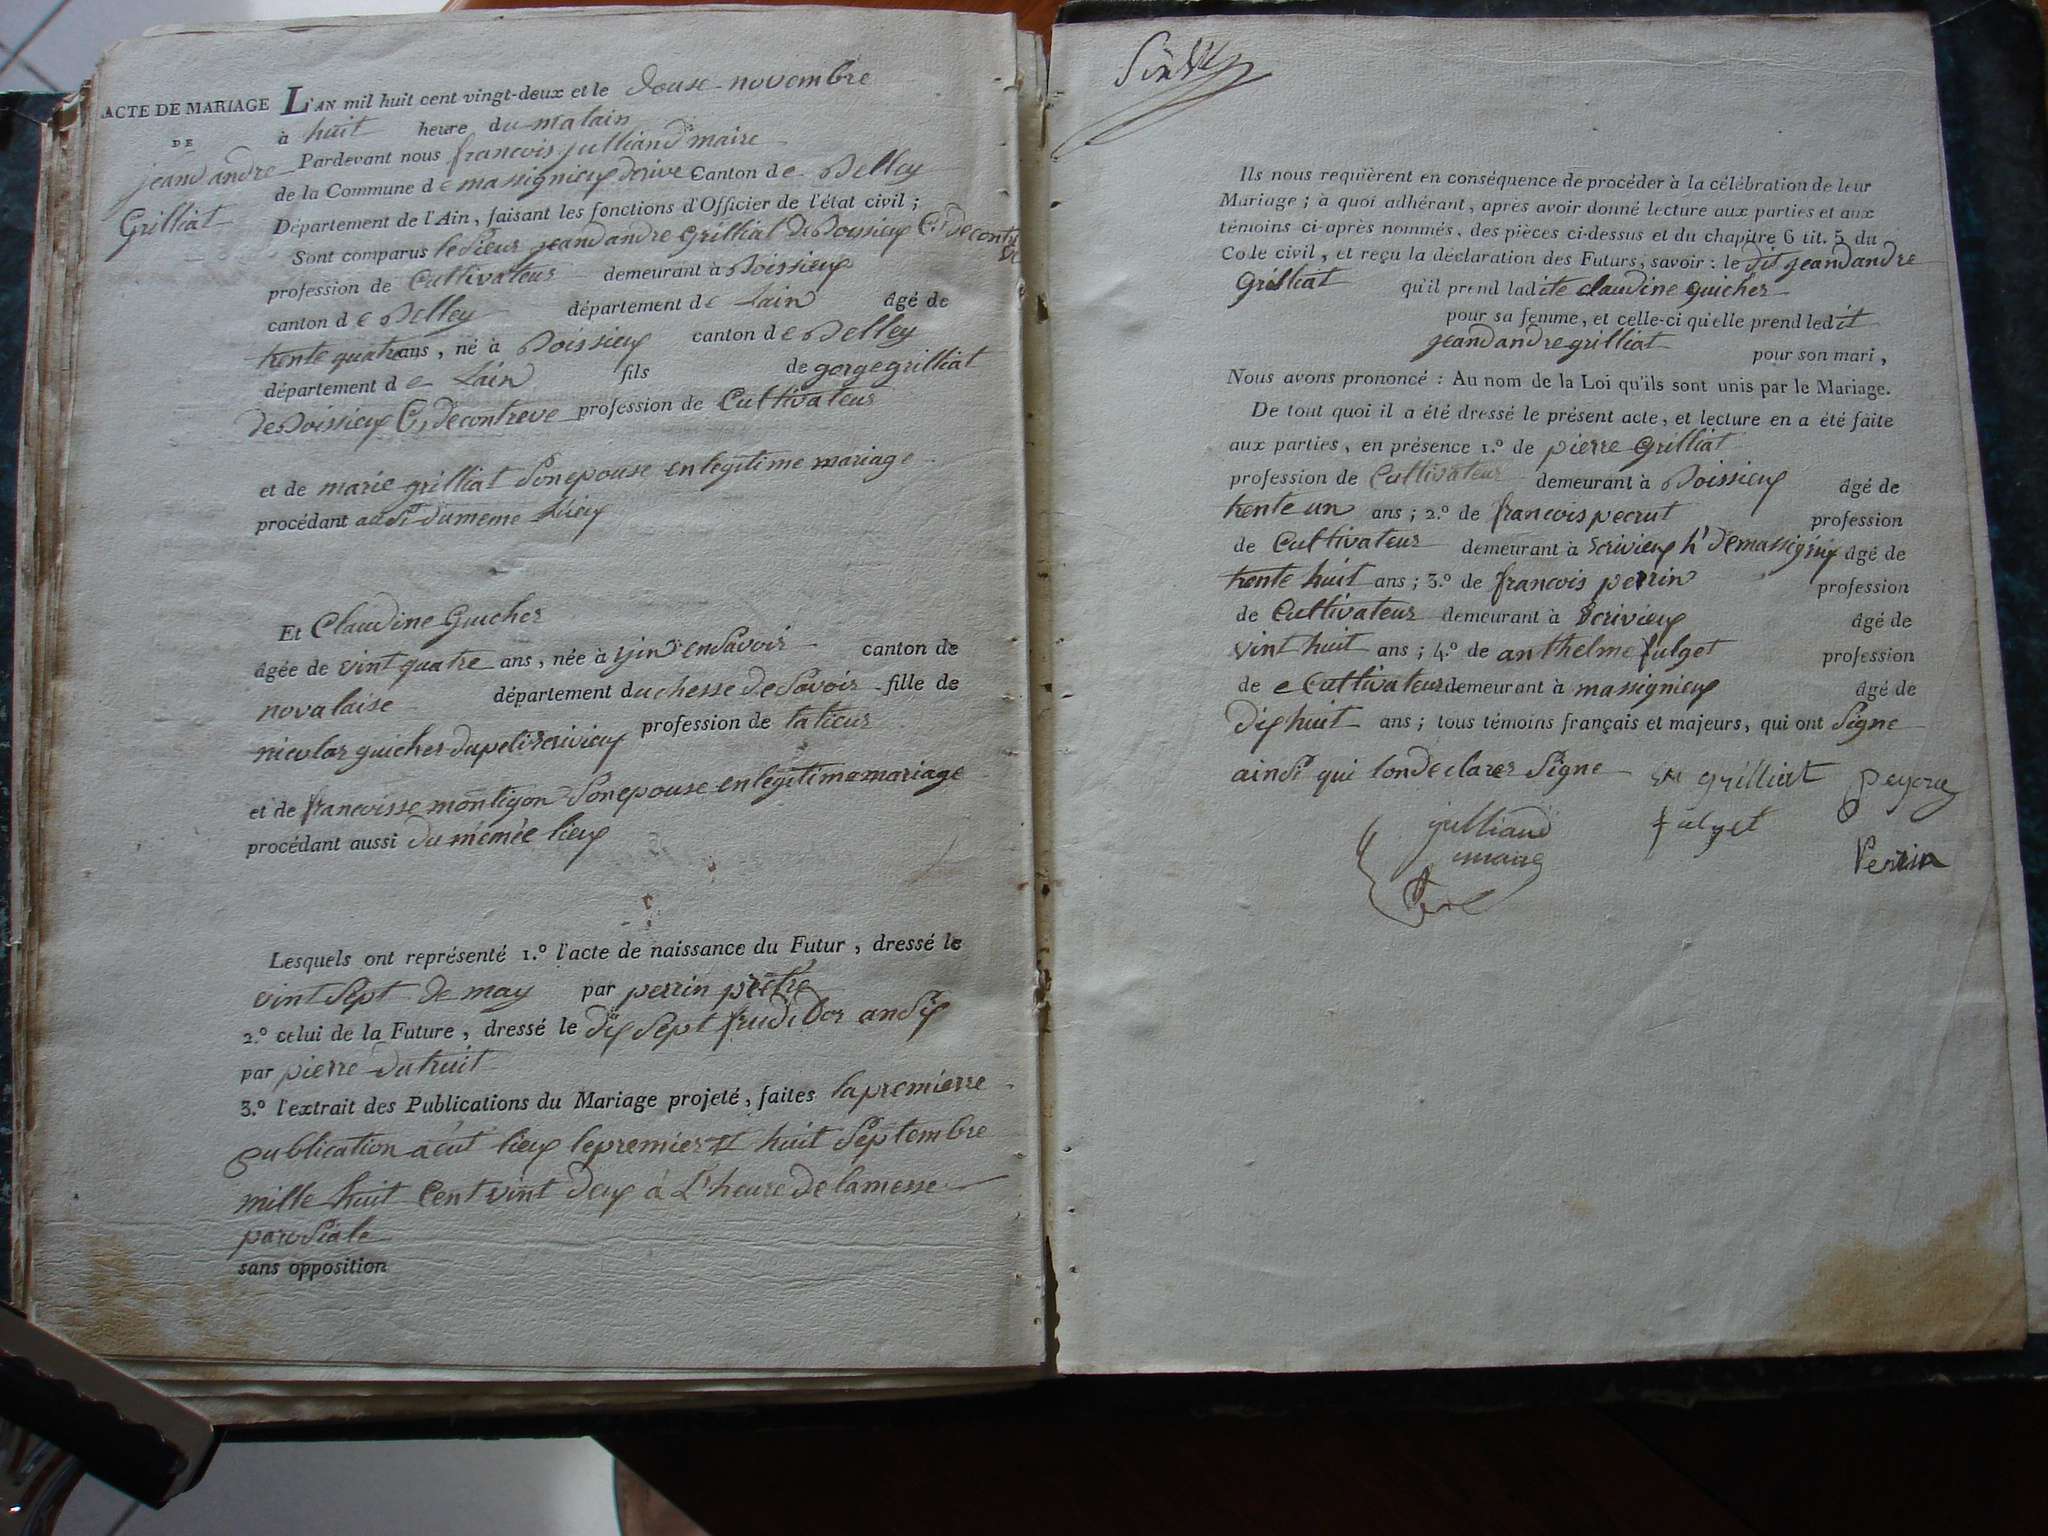 ACTE DE MARIAGE
DE
jeand andre
Grilliat
L'AN mil huit cent vingt-deux et le douse novembre
à huit heure du matain
Pardevant nous francois julliand maire
de la Commune de massignieux derive Canton de Belley
Département de l'Ain, faisant les fonctions d'Officier de l'état civil;
Sont comparus le Sieur jeand andre Grilliat de Boissieux C. de contreve
profession de Cultivateur demeurant à Boissieux
canton de Belley département de Lain âgé de
trente quatre ans, né à Boissieux canton de Belley
département de Lain fils de gorge grilliat
de Boissieux C. de contreve profession de Cultivateur
et de marie grilliat Son epouse en legitime mariage
procédant auSi du meme Lieux
Et Claudine Guicher
âgée de vint quatre ans, née à yin en Savoir canton de
novalaise département duchesse de Savoir fille de
nicolas guicher du petit Ecrivieux profession de talieur
et de francoisse montigon Son epouse en legitime mariage
procédant aussi du mémée lieux
Lesquels ont représenté 1.º l'acte de naissance du Futur, dressé le
vint Sept de may par perrin pretre
2.º celui de la Future, dressé le dix Sept frudidor an Six
par pierre dutruit
3.º l'extrait des Publications du Mariage projeté, faites la premierre
publication a eut lieux le premier et huit Septembre
mille huit Cent vint deux à L'heure de la messe
paroSiale
sans opposition
Ils nous requièrent en conséquence de procéder à la célébration de leur
Mariage; à quoi adhérant, après avoir donné lecture aux parties et aux
témoins ci-après nommés, des pièces ci-dessus et du chapitre 6 tit. 5 du
Code civil, et reçu la déclaration des Futurs, savoir: le dit jeand andre
Grilliat qu'il prend ladite claudine guicher
pour sa femme, et celle-ci qu'elle prend ledit
jeand andre grilliat pour son mari,
Nous avons prononcé: Au nom de la Loi qu'ils sont unis par le Mariage.
De tout quoi il a été dressé le présent acte, et lecture en a été faite
aux parties, en présence 1.º de pierre Grilliat
profession de Cultivateur demeurant à Boissieux âgé de
trente un ans; 2.º de francois pecrut profession
de Cultivateur demeurant à Ecrivieux h' de massignieux âgé de
trente huit ans; 3.º de francois perrin profession
de Cultivateur demeurant à Ecrivieux âgé de
vint huit ans; 4.º de anthelme fulget profession
de e Cultivateur demeurant à massignieux âgé de
dix huit ans; tous témoins français et majeurs, qui ont Signe
ainSi qui lon declarer Signe grilliat
julliand fulget
maire Perrin